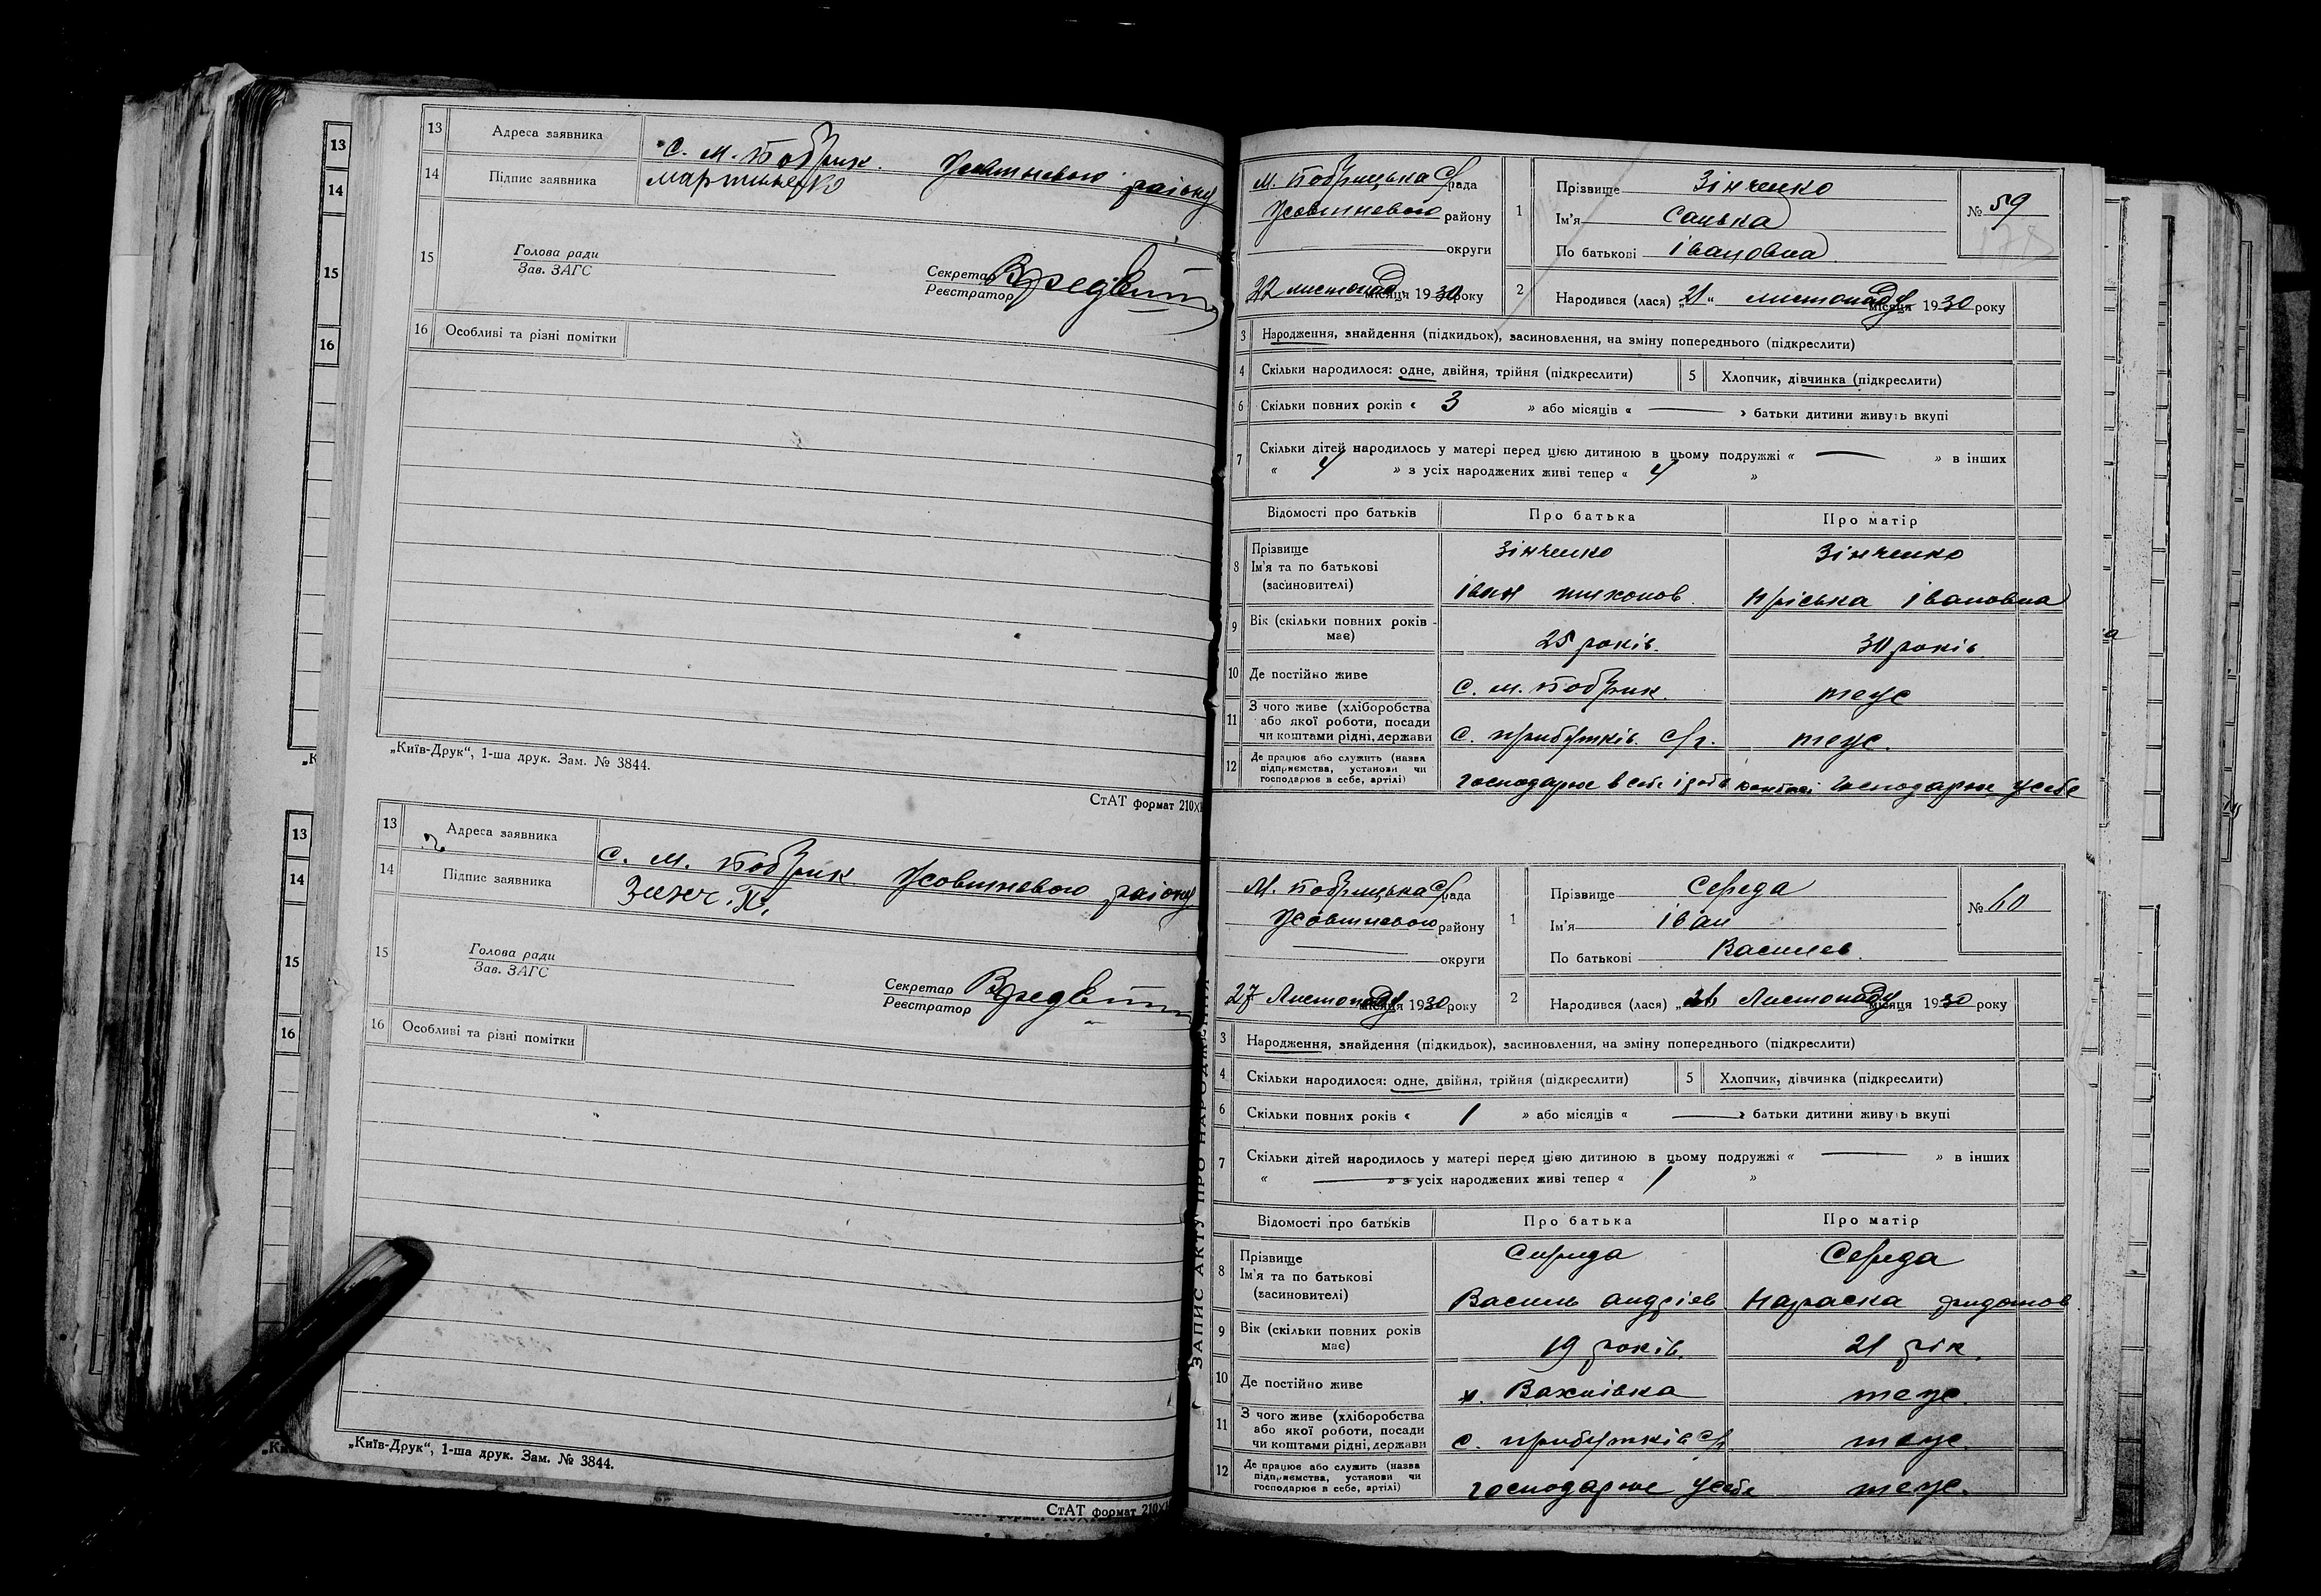 13 Адреса заявника с. М. Бобрик. Жовтневого району
14 Підпис заявника Мартиненко
15 Голова ради
Зав. ЗАГС
Секретар
Реєстратор
16 Особливі та різні помітки
„Київ-Друк“, 1-ша друк. Зам. № 3844.
СтАТ формат 210×
13 Адреса заявника с. М. Бобрик Жовтневого району
14 Підпис заявника Зинч. К.
15 Голова ради
Зав. ЗАГС
Секретар
Реєстратор
16 Особливі та різні помітки
„Київ-Друк“, 1-ша друк. Зам. № 3844.
СтАТ формат 210×
13
14
15
16
13
14
15
16
ЗАПИС АКТУ ПРО НАРОДЖЕННЯ
М. Бобрицька С/рада
Жовтневого району
округи
22 листопад місяця 1930 року
1 Прізвище Зінченко
Ім'я Санька
По батькові Івановна
№ 59
178
2 Народився (лася) „21“ листопаду місяця 1930 року
3 Народження, знайдення (підкидьок), засиновлення, на зміну попереднього (підкреслити)
4 Скільки народилося: одне, двійня, трійня (підкреслити) 5 Хлопчик, дівчинка (підкреслити)
6 Скільки повних років « 3 » або місяців « — » батьки дитини живуть вкупі
7 Скільки дітей народилось у матері перед цією дитиною в цьому подружжі « — » в інших
« 4 » з усіх народжених живі тепер « 4 »
Відомості про батьків Про батька Про матір
8 Прізвище Зінченко Зінченко
Ім'я та по батькові
(засиновителі) Іван тихонов. Пріська Івановна
9 Вік (скільки повних років має) 25 років. 30 років.
10 Де постійно живе с. м. Бобрик. теж
11 З чого живе (хліборобства
або якої роботи, посади
чи коштами рідні, держави с. прибутків. с/г. теж.
12 Де працює або служить (назва
підприємства, установи чи
господарює в себе, артілі) господарює в себе господарює у себе
М. Бобрицька С/рада
Жовтневого району
округи
27 Листопаду місяця 1930 року
1 Прізвище Середа
Ім'я Іван
По батькові Василев.
№ 60
2 Народився (лася) „26 Листопаду місяця 1930 року
3 Народження, знайдення (підкидьок), засиновлення, на зміну попереднього (підкреслити)
4 Скільки народилося: одне, двійня, трійня (підкреслити) 5 Хлопчик, дівчинка (підкреслити)
6 Скільки повних років « 1 » або місяців « — » батьки дитини живуть вкупі
7 Скільки дітей народилось у матері перед цією дитиною в цьому подружжі « — » в інших
« — » з усіх народжених живі тепер « 1 »
Відомості про батьків Про батька Про матір
8 Прізвище Середа Середа
Ім'я та по батькові
(засиновителі) Василь андріев Параска
9 Вік (скільки повних років має) 19 років. 21 рік.
10 Де постійно живе х. Вахнівка теж.
11 З чого живе (хліборобства
або якої роботи, посади
чи коштами рідні, держави с. прибутків с/г теж.
12 Де працює або служить (назва
підприємства, установи чи
господарює в себе, артілі) господарює у себе теж.